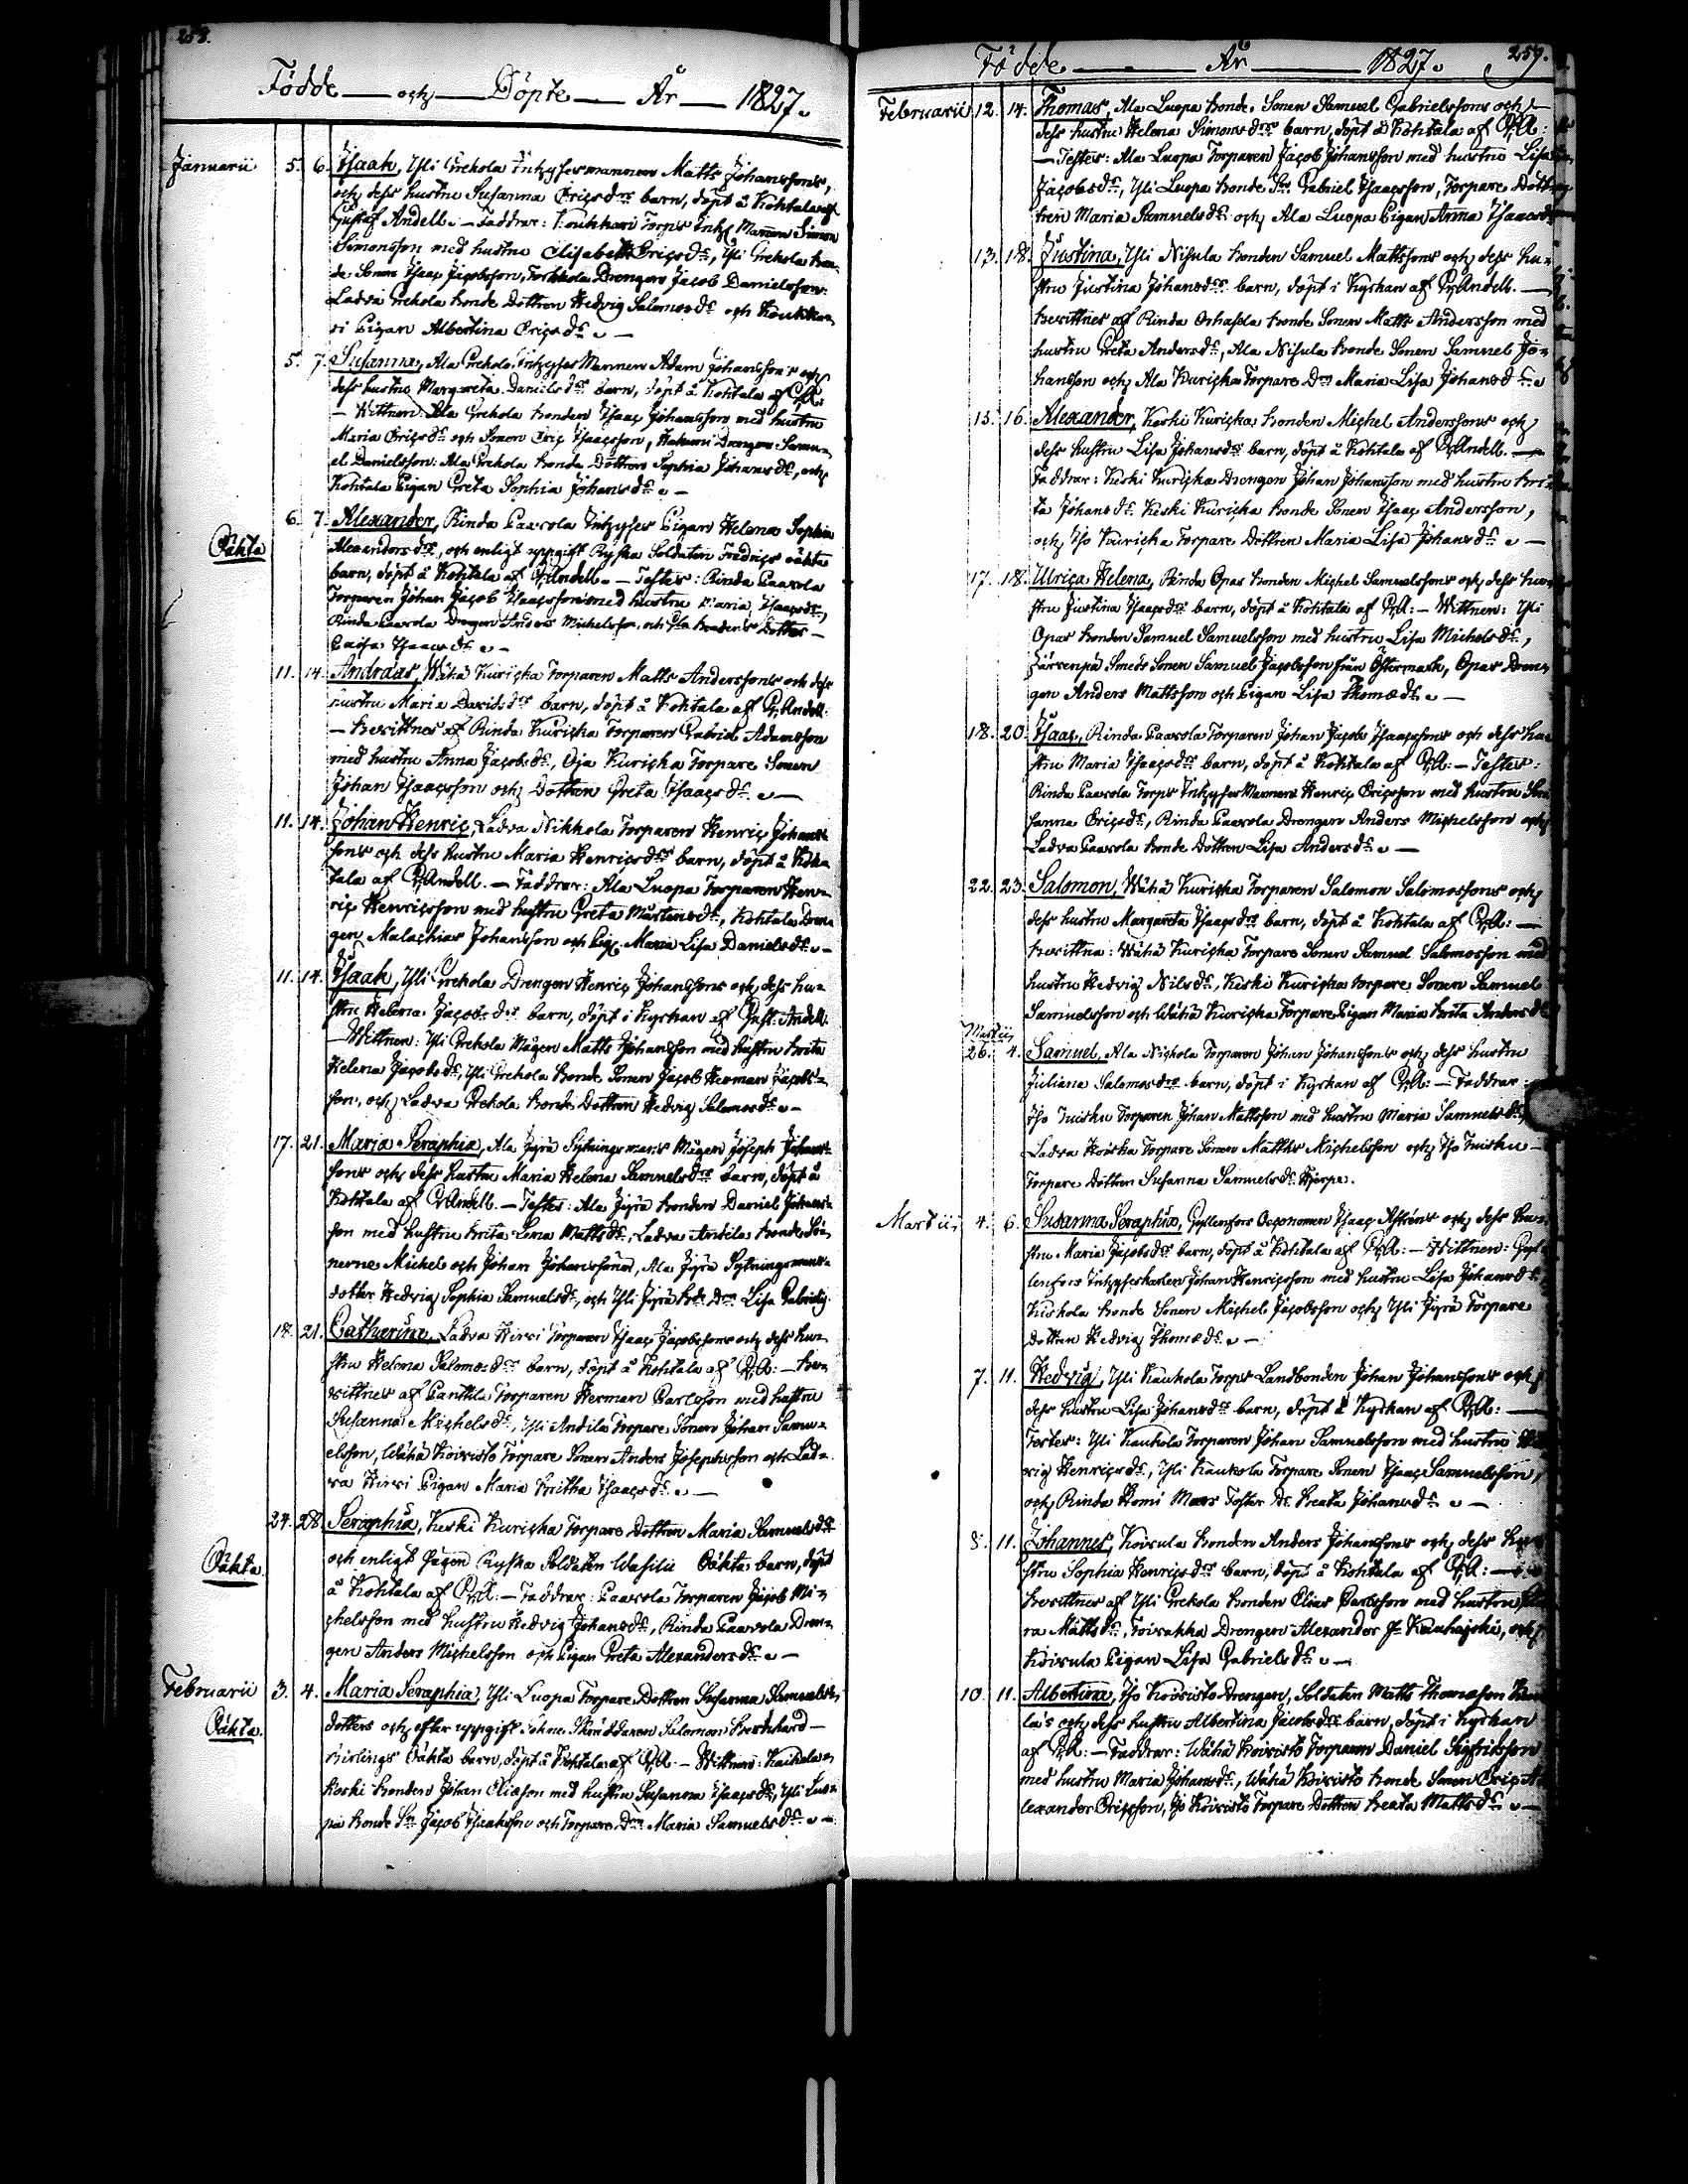 258.
Födde och Döpte År 1827.
Januarii 5. 6. Isaak, Yli Grekola Inhysesmannen Matts Johanssons,
och dess hustru Susanna Ericsdrs barn, döpt å Kohtala af
Gustaf Andell. — Faddrar: Koukkari Torps Inh: Mannen Simon
Simonsson med hustru Elisabeth Ericsdr, Yli Grekola bon-
de Sonen Isaac Jacobsson, Drengen Jacob Danielsson:
Ladva Grekola bonde Dottren Hedvig Salomosdr och Koukka-
ri Pigan Albertina Ericsdr. —
5. 7. Susanna, Ala Grekola Inhyses Mannen Adam Johansson's och
dess hustru Margareta Danielsdrs barn, döpt å Kohtala af G;A:
— Wittnen: Ala Grekola bonden Isaac Johansson med hustru
Maria Ericsdr och Sonen Eric Isaacsson, Drengen Samu-
el Danielsson: Ala Grekola bonde Dottren Sophia Johansdr, och
Kohtala Pigan Greta Sophia Johansdr. —
Oäkta 6. 7. Alexander, Rinda Paavola Inhyses Pigan Helena Sophia
Alexandersdrs, och enligt uppgift Ryska Soldaten Fredrics oäkta
barn, döpt å Kohtala af G;Andell. — Testes: Rinda Paavola
Torparen Johan Jacob Isaacsson med hustru Maria Isaacsdr,
Rinda Paavola Drengen Anders Michelsson, och bondens Dotter —
Caisa Isaacsdr. —
11. 14. Andreas, Wähä Kuricka Torparen Matts Anderssons och dess
hustru Maria Davidsdrs barn, döpt å Kohtala af G;Andell.
— bevittnes af Rinda Kuricka Torparen Gabriel Adamsson
med hustru Anna Jacobsdr, Oja Kuricka Torpare Sonen
Johan Isaacsson och Dottren Greta Isaacsdr. —
11. 14. Johan Henric, Ladva Nikkola Torparen Henric Johans-
sons och dess hustru Maria Henricsdrs barn, döpt å Koh-
tala af G;Andell. — Faddrar: Ala Luopa Torparen Hen-
ric Henricsson med hustru Greta Mårtensdr, Kohtala Dren-
gen Malachias Johansson och Pig: Maria Lisa Danielsdr. —
11. 14. Isaak, Yli Grekola Drengen Henric Johanssons och dess hu-
stru Helena Jacobsdrs barn, döpt i Kyrkan af Gust: Andell.
— Wittnen: Yli Grekola Mågen Matts Johansson med hustru Brita
Helena Jacobsdr, Yli Grekola Bonde Sonen Jacob Herman Jacobs-
son, och Ladva Grekola Bonde Dottren Hedvig Salomosdr. —
17. 21. Maria Seraphia, Ala Jyrä Sytningsmans Mågen Joseph Johans-
sons och dess hustru Maria Helena Samuelsdrs barn, döpt å
Kohtala af G;Andell. — Testes: Ala Jyrä bonden Daniel Johans-
son med hustru Brita Lena Mattsdr, Ladva Anttila bonde Sö-
nerne Michel och Johan Johanssöner, Ala Jyrä Sytningsmans
dotter Hedvig Sophia Samuelsdr, och Yli Jyrä bde Drn Lisa Gabrielsdr
18. 21. Catharina, Ladva Hirvi Torparen Isaac Jacobssons och dess hu-
stru Helena Salomosdrs barn, döpt å Kohtala af G;A: — be-
vittnes af Panttila Torparen Herman Carlsson med hustru
Susanna Michelsdr, Yli Anttila Torpare Sonen Johan Samu-
elsson, Wähä Koivisto Torpare Sonen Anders Josephsson och Lad-
va Hirvi Pigan Maria Britha Isaacsdr. —
24. 28. Seraphia, Keski Kuricka Torpare Dottren Maria Samuelsdrs
Oäkta och enligt sägen Ryska Soldaten Wasilie Oäkta barn, döpt
å Kohtala af G;A: — Faddrar: Paavola Torparen Jacob Mi-
chelsson med hustru Hedvig Johansdr, Rinda Paavola Dren-
gen Anders Michelsson och Pigan Greta Alexandersdr. —
Februarii 3. 4. Maria Seraphia, Yli Luopa Torpare Dottren Susanna Samuels-
Oäkta dotters och efter uppgift Skräddaren Salomon Bernhard —
Oäkta barn, döpt å Kohtala af G;A: — Wittnen:
Koski bonden Johan Eliasson med hustru Susanna Isaacsdr, Yli Luo-
pa Bonde Sn Jacob Isaaksson och Torpare Drn Maria Samuelsdr. —
Födde År 1827. 259.
Februarii 12. 14. Thomas, Ala Luopa bonde Sonen Samuel Gabrielssons och
dess hustru Helena Simonsdrs barn, döpt å Kohtala af G;A:
— Testes: Ala Luopa Torparen Jacob Johansson med hustru Lisa
Jacobsdr, Yli Luopa bonde Sn Gabriel Isaacsson, Torpare Dott-
tren Maria Samuelsdr och Ala Luopa Pigan Anna Isaacsdr
13. 18. Justina, Yli Nisula bonden Samuel Mattssons och dess hu-
stru Justina Johansdrs barn, döpt i Kyrkan af G;Andell. —
bevittnes af Rinda bonde Sonen Matts Andersson med
hustru Greta Andersdr, Ala Nisula bonde Sonen Samuel Jo-
hansson och Ala Kuricka Torpare Drn Maria Lisa Johansdr.
15. 16. Alexander, Keski Kuricka bonden Michel Anderssons och
dess hustru Lisa Johansdrs barn, döpt å Kohtala af G;Andell. —
Faddrar: Keski Kuricka Drengen Johan Johansson med hustru Bri-
ta Johansdr. Keski Kuricka bonde Sonen Isaac Andersson,
och Iso Kuricka Torpare Dottren Maria Lisa Johansdr. —
17. 18. Ulrica Helena, Rinda Opas bonden Michel Samuelssons och dess hu-
stru Justina Isaacsdrs barn, döpt å Kohtala af G;A: — Wittnen: Yli
Opas bonden Samuel Samuelsson med hustru Lisa Michelsdr,
Järvenpä Smeds Sonen Samuel Jacobsson från Östermark, Opas Dren-
gen Anders Mattsson och Pigan Lisa Thomædr. —
18. 20. Isaac, Rinda Paavola Torparen Johan Jacob Isaacssons och dess hu-
stru Maria Isaacsdrs barn, döpt å Kohtala af G;A: — Testes:
Rinda Paavola Torps Inhyses Mannen Henric Ericsson med hustru Su-
sanna Ericsdr, Rinda Paavola Drengen Anders Michelsson och
Ladva Paavola bonde Dottren Lisa Andersdr. —
22. 23. Salomon, Wähä Kuricka Torparen Salomon Salomossons och
dess hustru Margareta Isaacsdrs barn, döpt å Kohtala af G;A: —
bevittna: Wähä Kuricka Torpare Sonen Samuel Salomosson med
hustru Hedvig Nilsdr, Keski Kuricka torpare Sonen Samuel
Samuelsson och Wähä Kuricka Torpare Pigan Maria Brita Andersdr
Martii
26. 4. Samuel, Ala Nickola Torparen Johan Johanssons och dess hustru
Juliana Salomosdrs barn, döpt i Kyrkan af G;A: — Faddrar:
Iso Torparen Johan Mattsson med hustru Maria Samuelsdr,
Ladva Torpare Sonen Matths Michelsson och Iso —
Torpare Dottren Susanna Samuelsdr
Martii 4. 6. Susanna Seraphia, Gyllenfors Oeconomen Isaac och dess hu-
stru Maria Jacobsdrs barn, döpt å Kohtala af G;A: — Wittnen: Gyl-
lenfors Inhyseskarlen Johan Henricsson med hustru Lisa Johansdr,
bonde Sonen Michel Jacobsson och Yli Jyrä Torpare
dottren Hedvig Thomædr. —
7. 11. Hedvig, Yli Kaukola Torps Landbonden Johan Johanssons och
dess hustru Lisa Johansdrs barn, döpt å Kyrkan af G;A: —
Testes: Yli Kaukola Torparen Johan Samuelsson med hustru Hed-
vig Henricsdr, Yli Kaukola Torpare Sonen Isaac Samuelsson,
och Rinda Beata Johansdr. —
8. 11. Johannes, Koivula bonden Anders Johanssons och dess hu-
stru Sophia Henricsdrs barn, döpt å Kohtala af G;A: —
bevittnes af Yli Grekola bonden Elias Carlsson med hustru
Mattsdr, Drengen Alexander Kauhajoki, och
Koivula Pigan Lisa Gabrielsdr. —
10. 11. Albertina, Iso Koivisto Drengen, Soldaten Matts Thomasson
och dess hustru Albertina Jacobsdrs barn, döpt i Kyrkan
af G;A: — Faddrar: Wähä Koivisto Torparen Daniel Sigfridsson
med hustru Maria Johansdr, Wähä Koivisto bonde Sonen Eric A-
lexander Ericsson, Iso Koivisto Torpare Dottren Beata Mattsdr. —